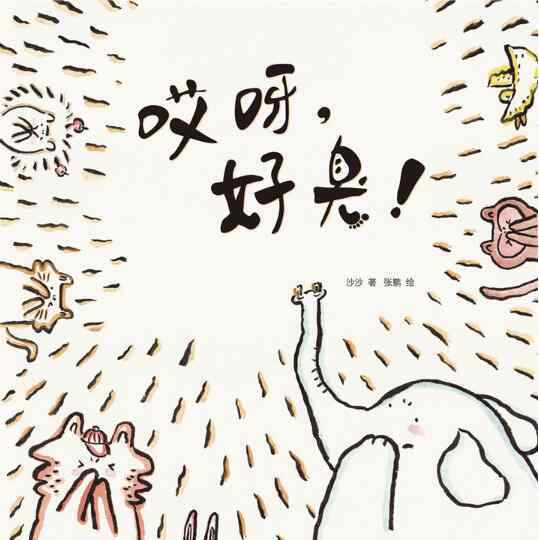 哎呀，
好臭！
沙沙 著 张鹏 绘